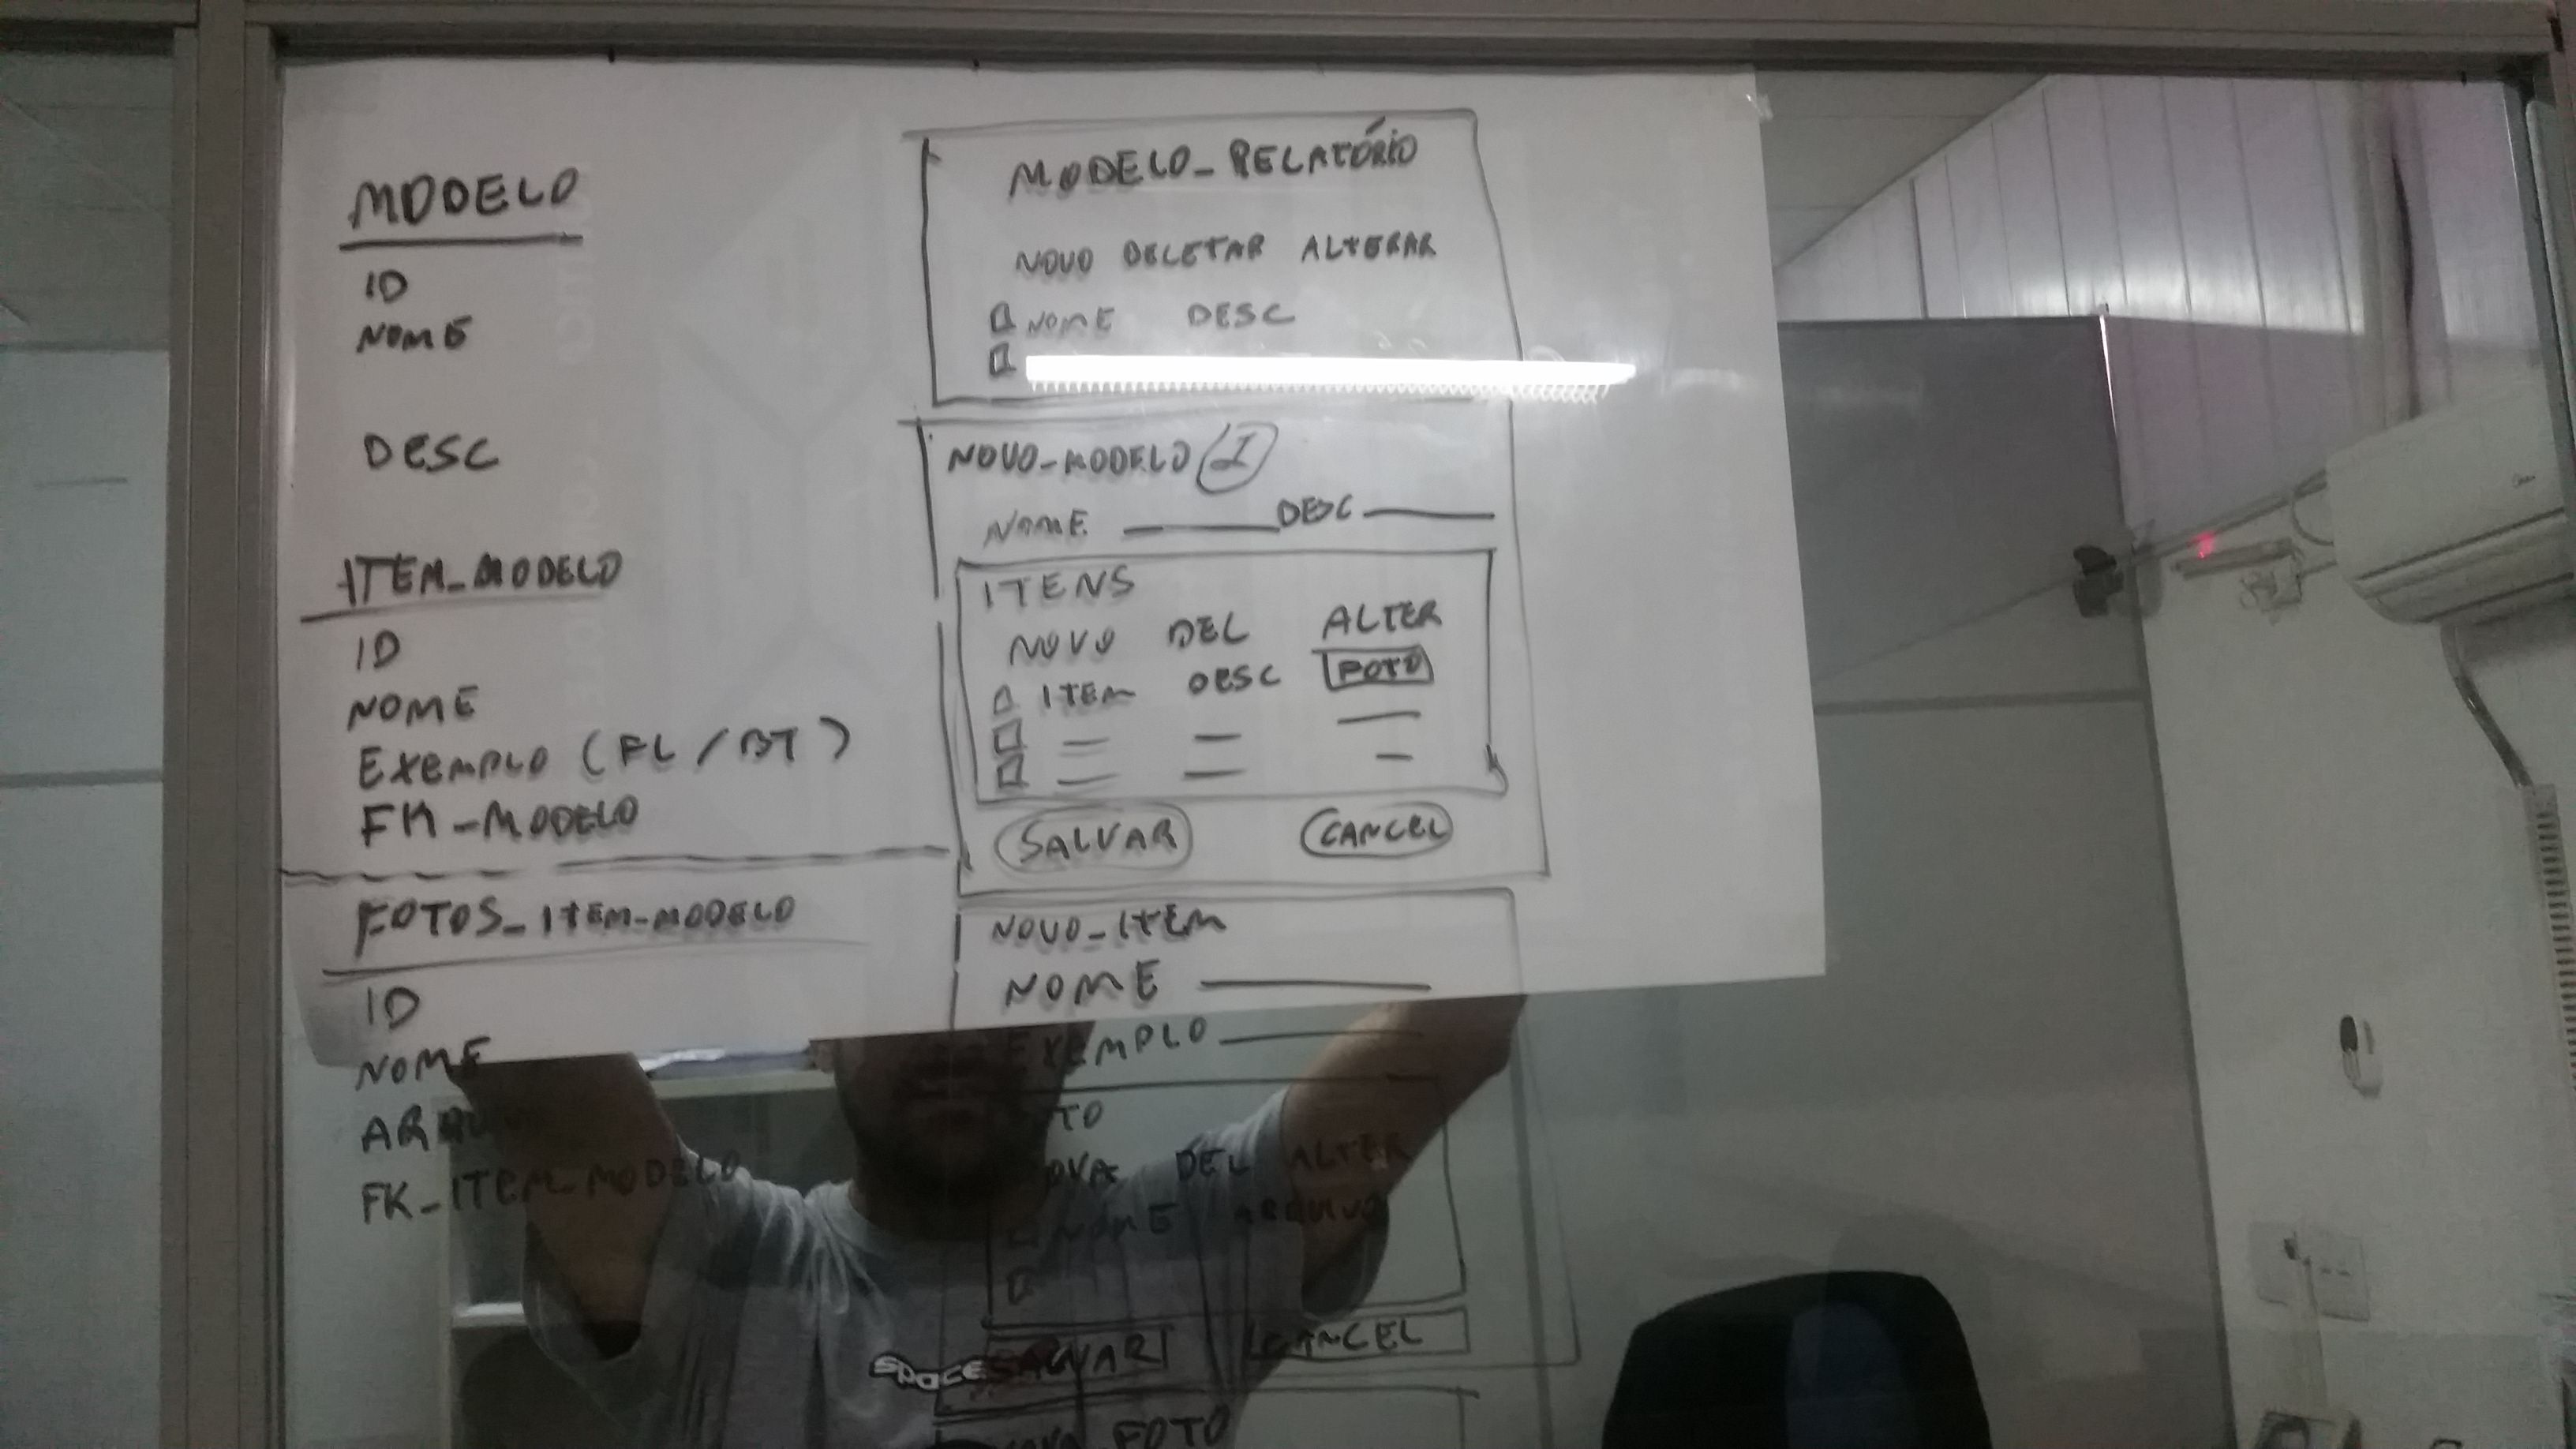 MODELO
ID
NOME
DESC
ITEM_MODELO
ID
NOME
EXEMPLO (FL / BT)
FK_MODELO
FOTOS_ITEM_MODELO
ID
NOME
FK_ITEM_MODELO
MODELO_RELATÓRIO
NOVO DELETAR ALTERAR
NOME DESC
NOVO_MODELO I
NOME DESC
ITENS
NOVO DEL ALTER
ITEM DESC FOTO
SALVAR CANCEL
NOVO_ITEM
NOME
EXEMPLO
DEL ALTER
NOME ARQUIVO
SALVAR CANCEL
FOTO
SPACE